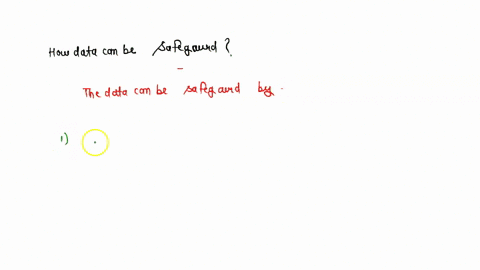 How data can be safegaurd?
The data can be safegaurd by.
1)